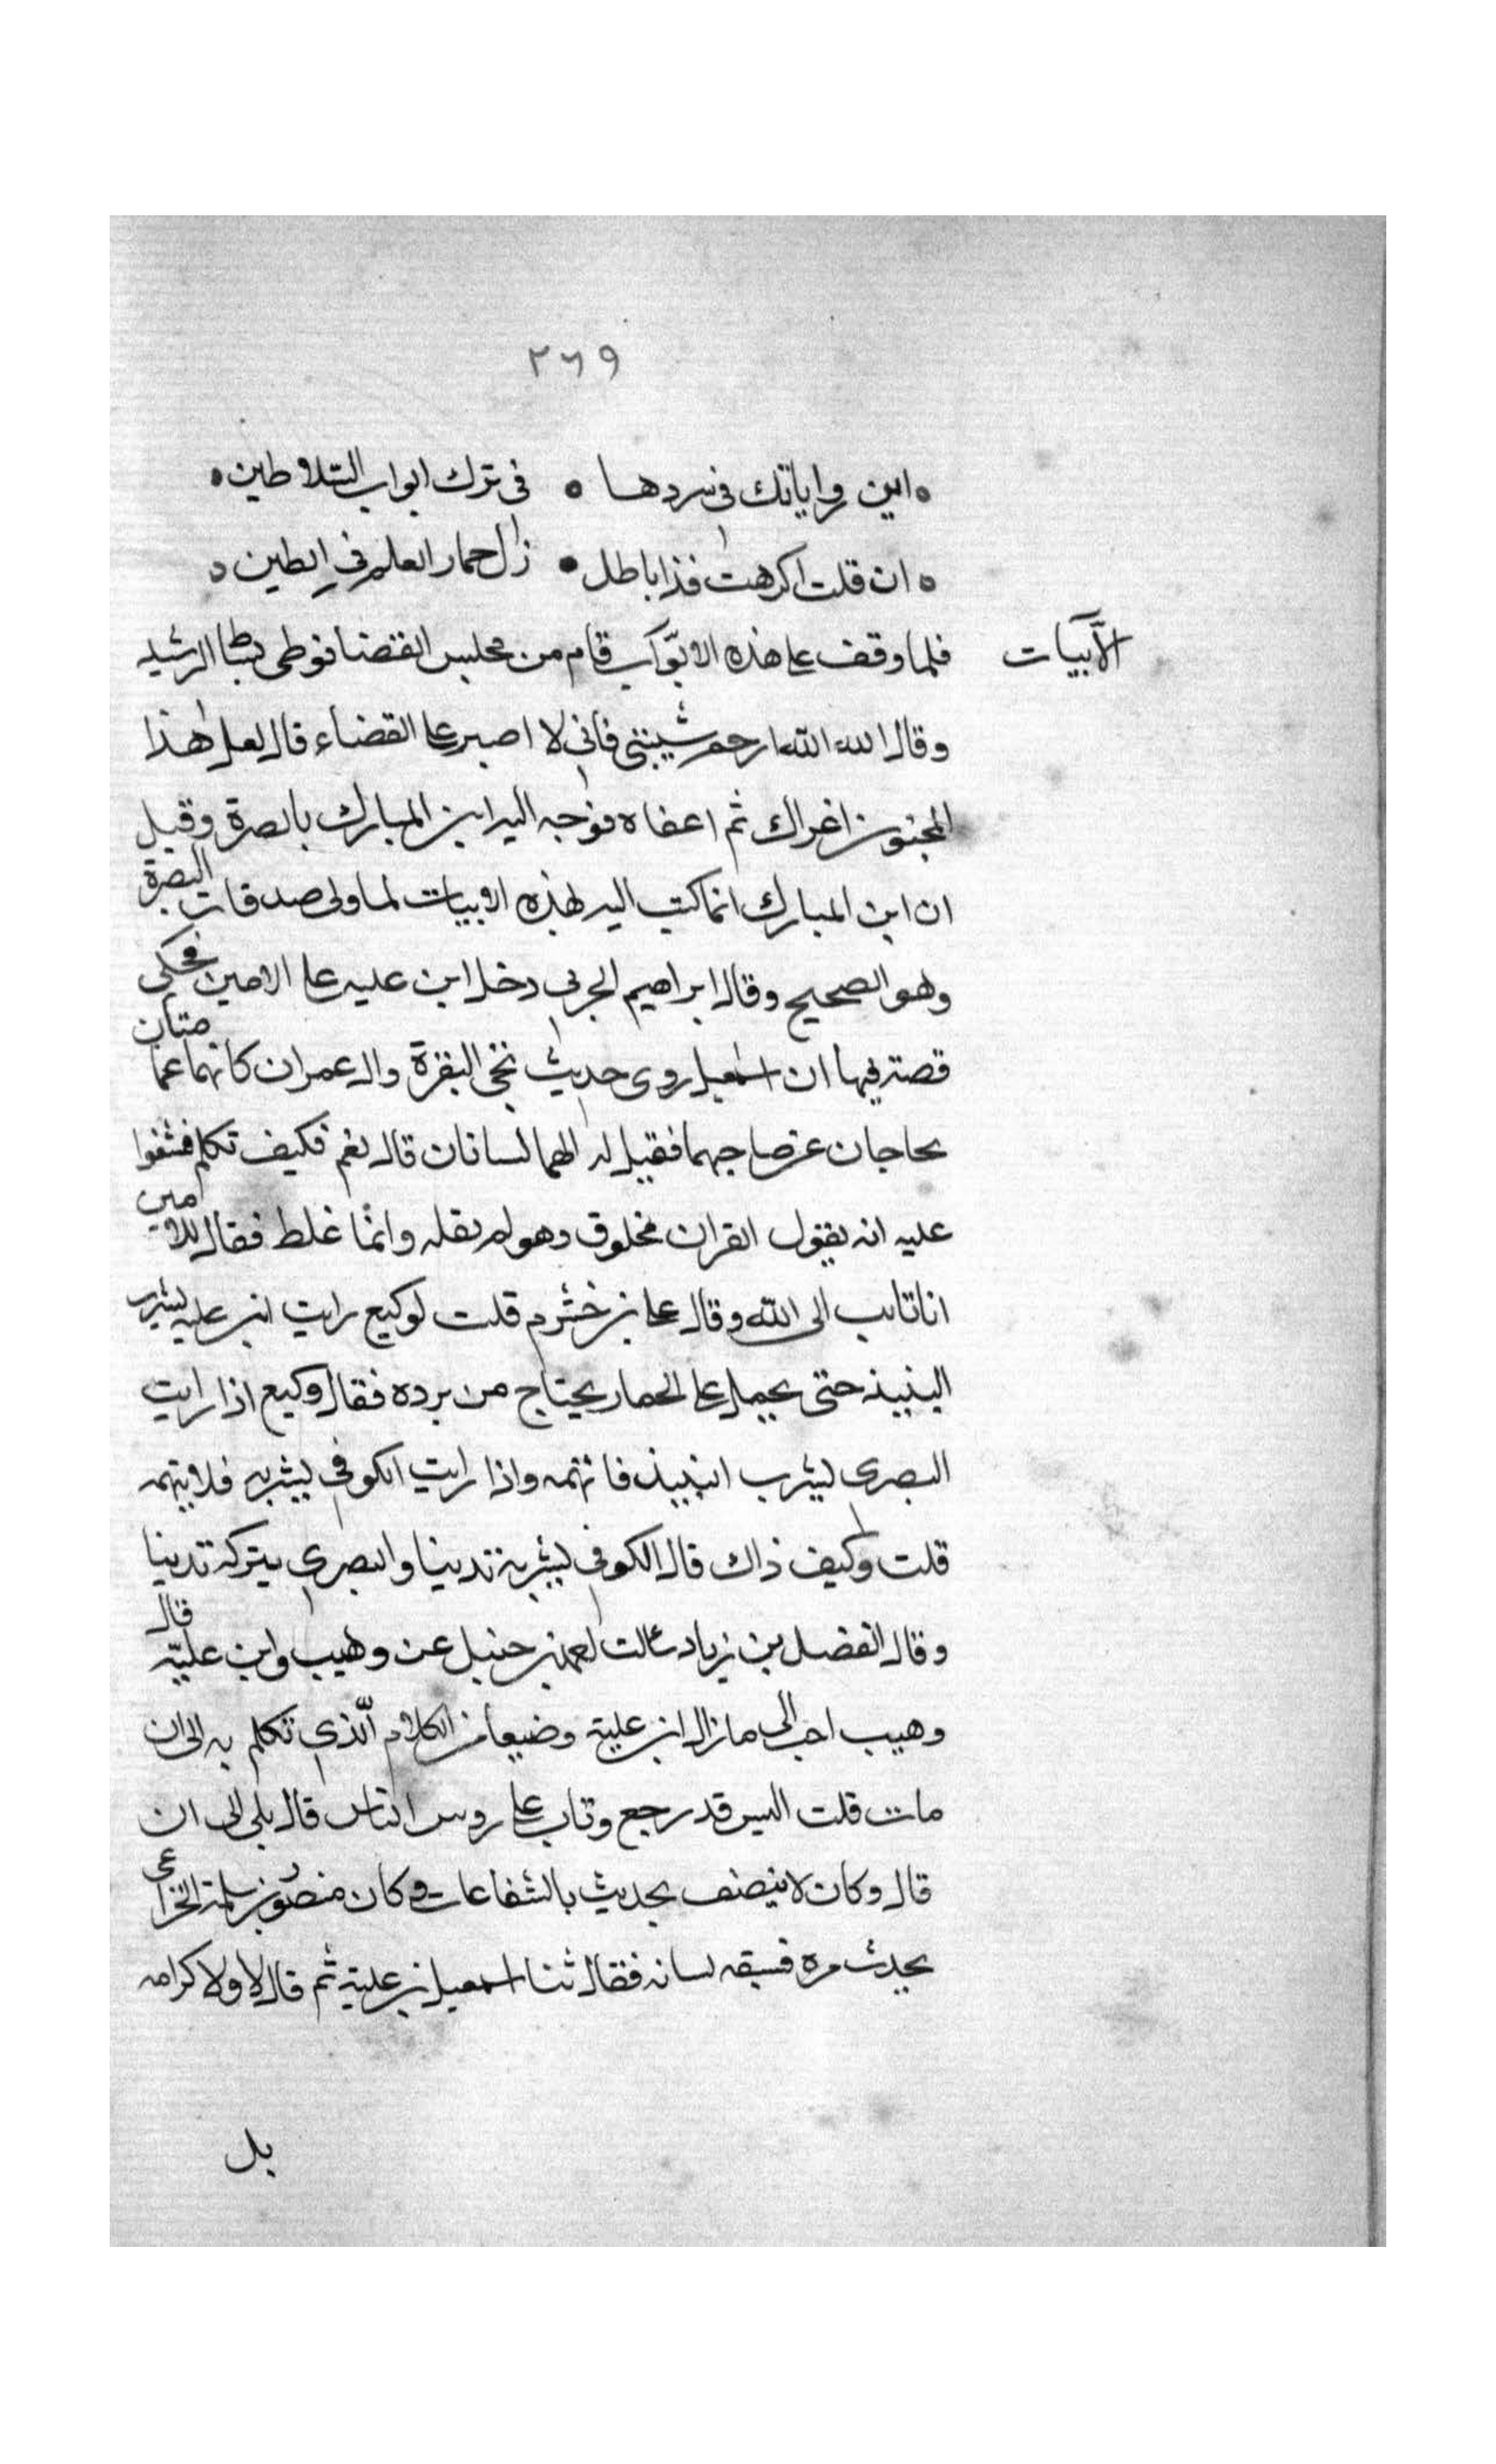 ٢٦٩
اين رواياتك فى سردها • فى ترك ابواب السلاطين
ان قلت اكرهت فذا باطل • زل حمار العلم فى الطين
فلما وقف على هذه الابواب قام من مجلس القضا فوطى بساط الرشيد
الأبيات
وقال الله الله ارحم شيبتى فانى لا اصبر على القضاء قال لعل هذا
المجنون اغراك ثم اعفاه فوجه اليه ابن المبارك بالصرة وقيل
ان ابن المبارك انما كتب اليه بهذه الابيات لما ولى صدقات البصرة
وهو الصحيح وقال ابراهيم الحربى دخل ابن عليه على الامين فحكى
قصته فيها ان اسمعيل روى حديث تجى البقرة وال عمران كانهما غمامتان
يحاجان عن صاحبهما فقيل له الهما لسانان قال نعم فكيف تكلم فشنعوا
عليه انه يقول القران مخلوق وهو لم يقله وانما غلط فقال للامين
انا تائب الى الله وقال على بن خشرم قلت لوكيع رايت ابن عليه يشرب
النبيذ حتى يحمل على الحمار يحتاج من يرده فقال وكيع اذا رايت
البصرى يشرب النبيذ فاتهمه واذا رايت الكوفى يشربه فلا تتهمه
قلت وكيف ذاك قال الكوفى يشربه تدينا والبصرى يتركه تدينا
وقال الفضل بن زياد سالت احمد بن حنبل عن وهيب وابن عليّه قال
وهيب احب الى مازال ابن علية وضيعا من الكلام الّذى تكلم به الى ان
مات قلت اليس قد رجع وتاب على روس الناس قال بلى الى ان
قال وكان لا ينصف يحديث بالشفاعات وكان منصور بن سلمة الخزاعى
يحدث مره فسبقه لسانه فقال ثنا اسمعيل بن علية ثم قال لا ولا كرامه
بل